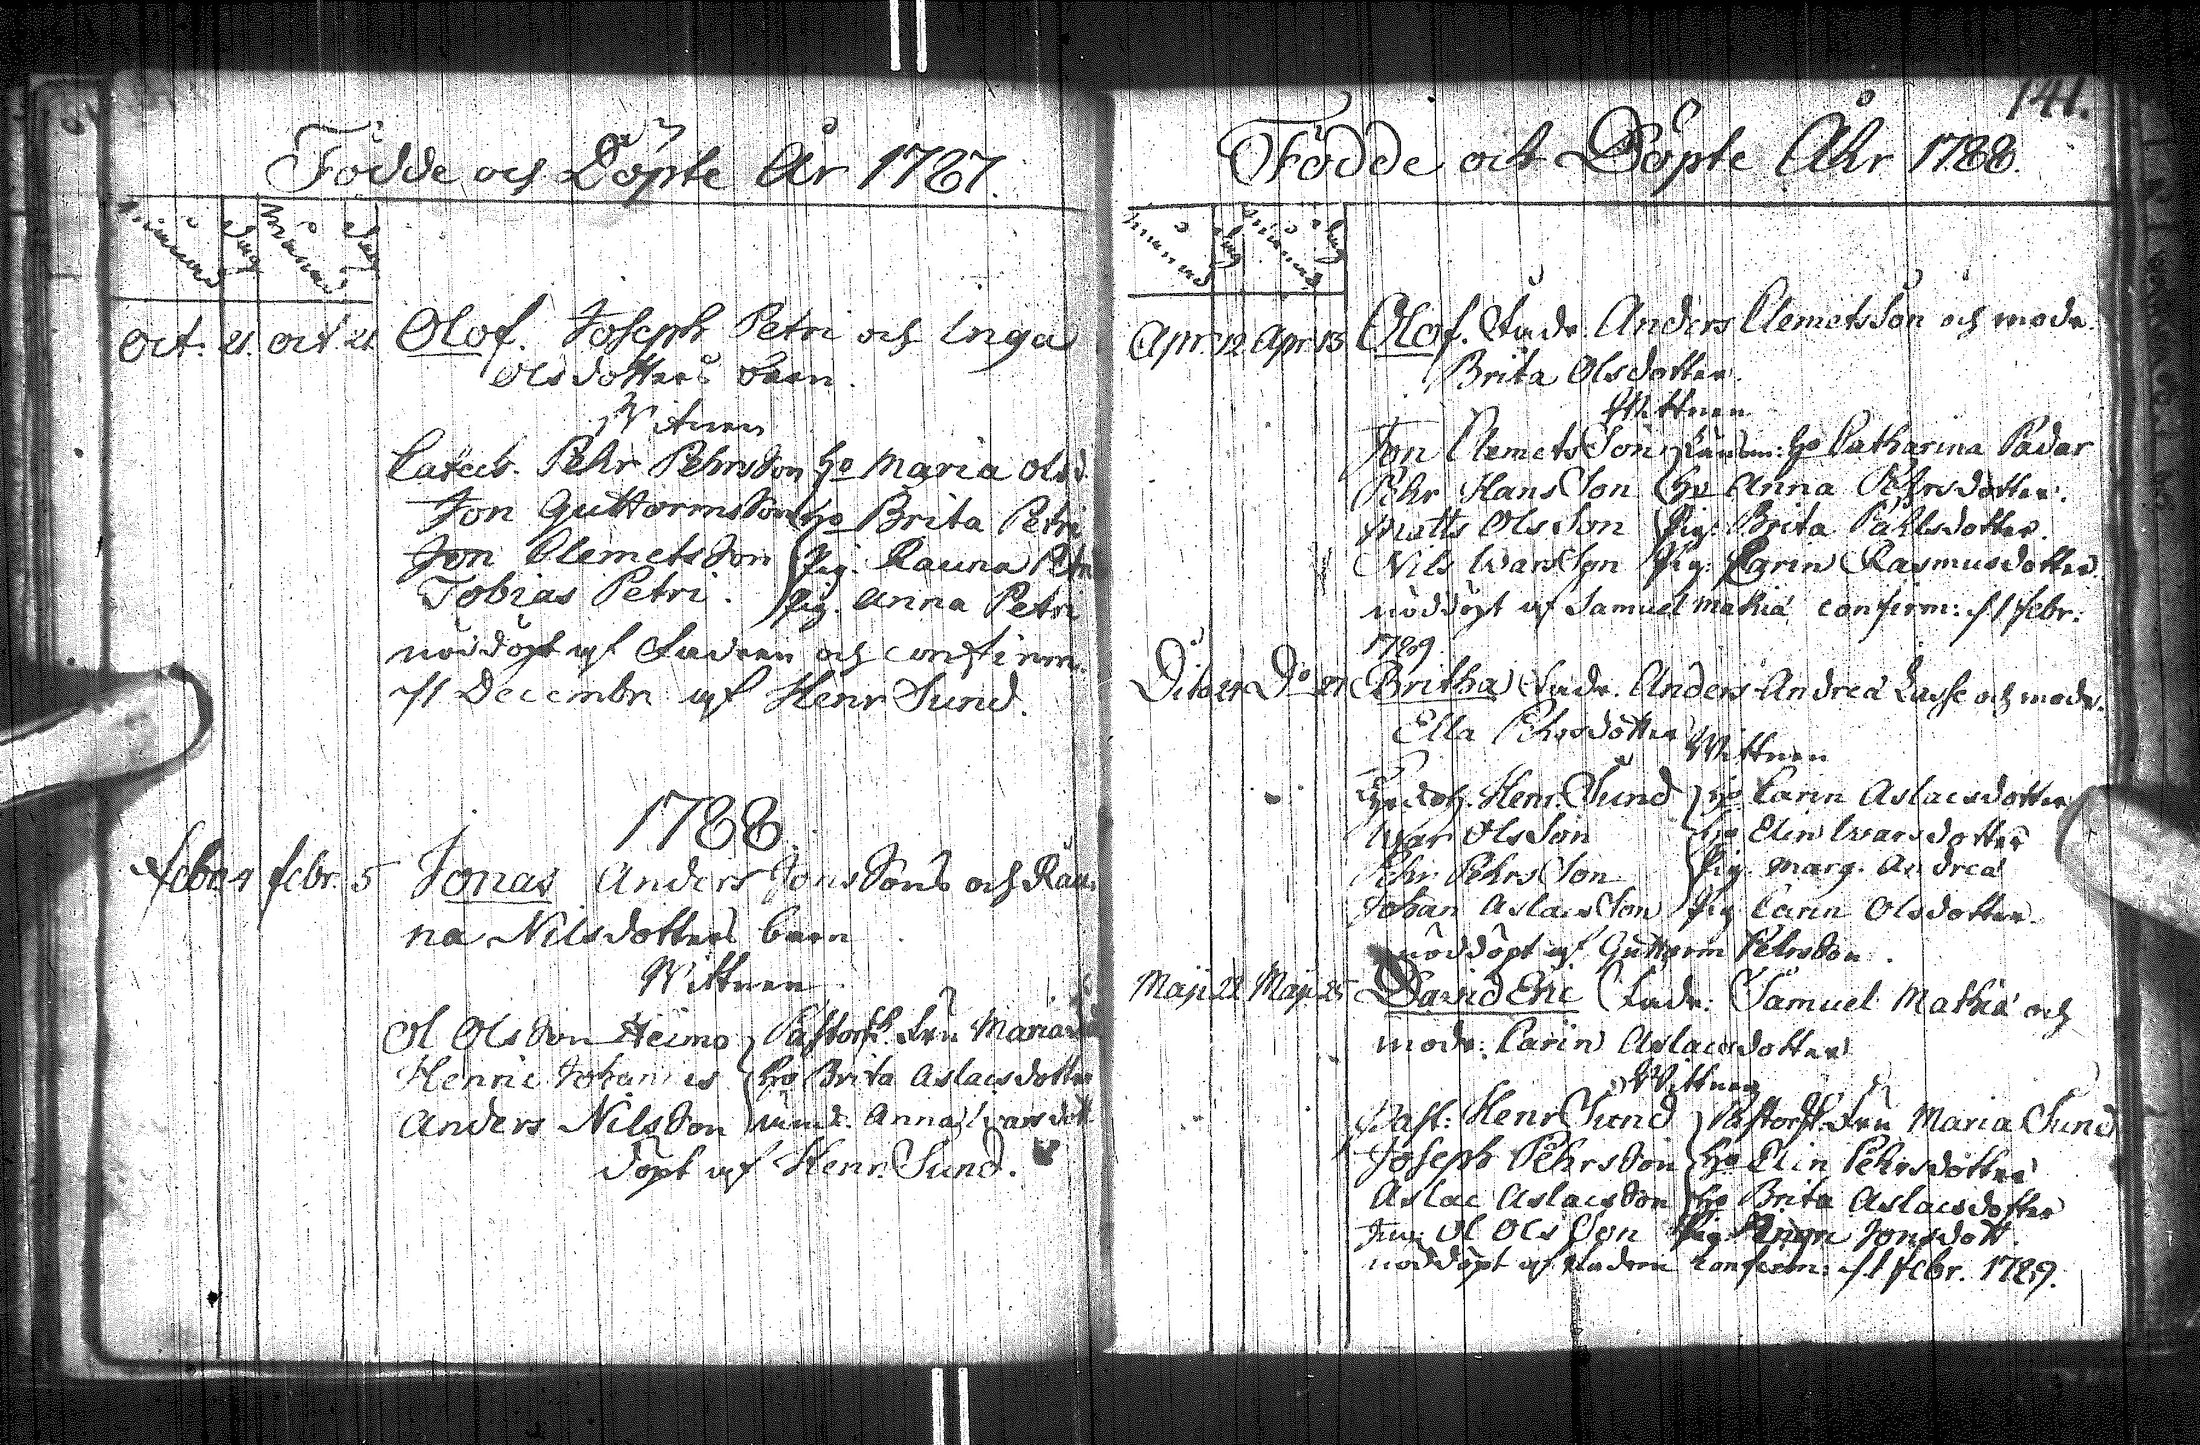 Födde och Döpte År 1787.
månad dag månad dag
Oct. 21. Oct. 21 Olof. Joseph Petri och Inga
Olsdotters barn.
Witnen
Catech. Pehr Pehrsson Ho Maria Olsd.
Jon Guttormsson Ho Brita Petri
Jon Clemetsson Pig. Rauna Petri
Tobias Petri. Pig. Anna Petri
nöddöpt af Fadren och confirm.
Decembr af Henr Sund.
1788.
Febr. 4 Febr. 5 Jonas Anders Jonssons och Rau
na Nilsdotters barn
Wittnen
Ol Olsson Heimo Pastorsk. Fru Maria
Henric Johannis Ho Brita Aslacsdotter
Anders Nilsson Anna Ivarsdott
döpt af Henr. Sund.
141.
Födde och Döpte Åhr 1788.
månad dag månad dag
Apr. 12 Apr. 13 Olof. Fadr. Anders Clemetsson och modr.
Brita Olsdotter.
Wittnen
Jon Clemetsson Ho Catharina Padar
Pehr Hansson Ho Anna Pehrsdotter.
Matts Olsson Pig. Brita Påhlsdotter.
Nils Ivarsson Pig. Carin Rasmusdotter.
nöddöpt af Samuel Mathiæ confirm: Febr.
1789
Dito 24 Do 27 Britha Fadr. Anders Andreæ Lasse och modr.
Ella Pehrsdotter
Wittnen
Henr. Sund Ho Carin Aslacsdotter
Ivar Olsson Ho Elin Ivarsdotter
Pehr Pehrsson Pig. Marg. Andreæ
Johan Aslacsson Pig Carin Olsdotter
nöddöpt af Guttorm Pehrsson.
Maji 22 Maji 25 David Eric Fadr. Samuel Mathiæ och
modr. Carin Aslacsdotter
Wittnen
Past: Henr Sund Pastorsk. Fru Maria Sund
Joseph Pehrsson Ho Elin Pehrsdotter
Aslac Aslacsson Ho Brita Aslacsdotter
Ol Olsson Pig. Inga Jonsdott.
nöddöpt af Fadren confirm: Febr. 1789.